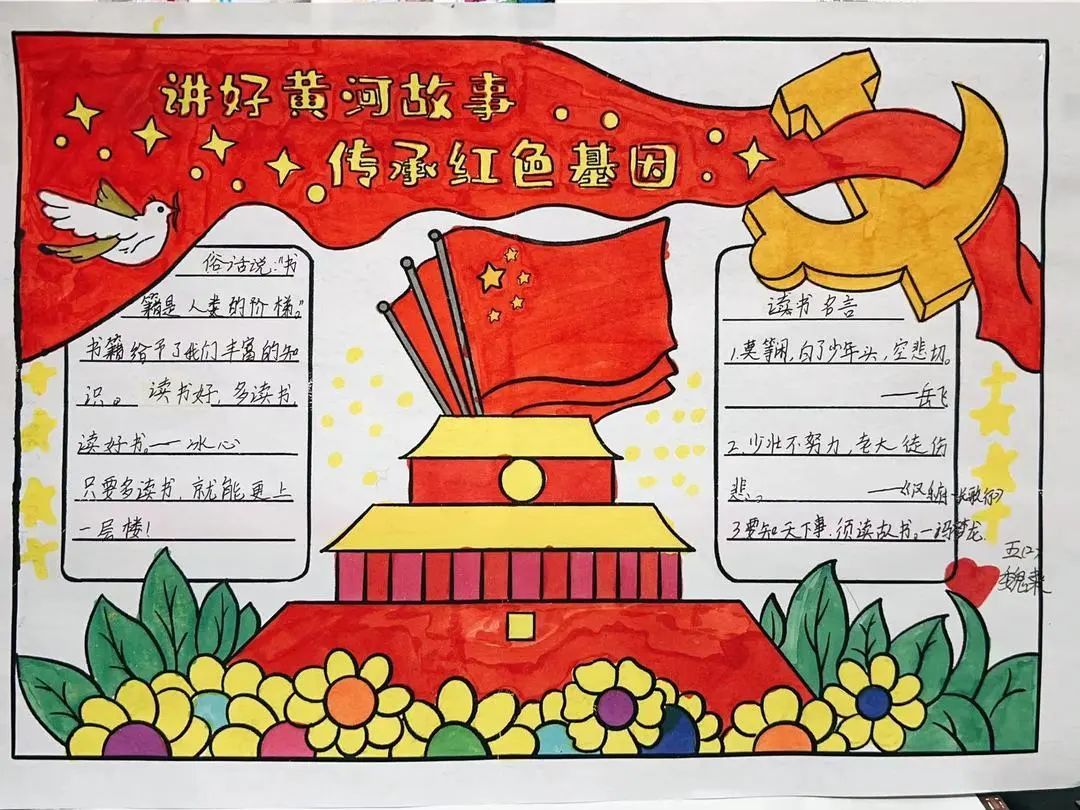 讲好黄河故事
传承红色基因
俗话说:"书
籍是人类的阶梯。"
书籍给予了我们丰富的知
识。读书好,多读书,
读好书。——冰心
只要多读书,就能更上
一层楼!
读书名言
1.莫等闲,白了少年头,空悲切。
——岳飞
2.少壮不努力,老大徒伤
悲。——《汉乐府·长歌行》
3要知天下事,须读古书。—冯梦龙
五(2)